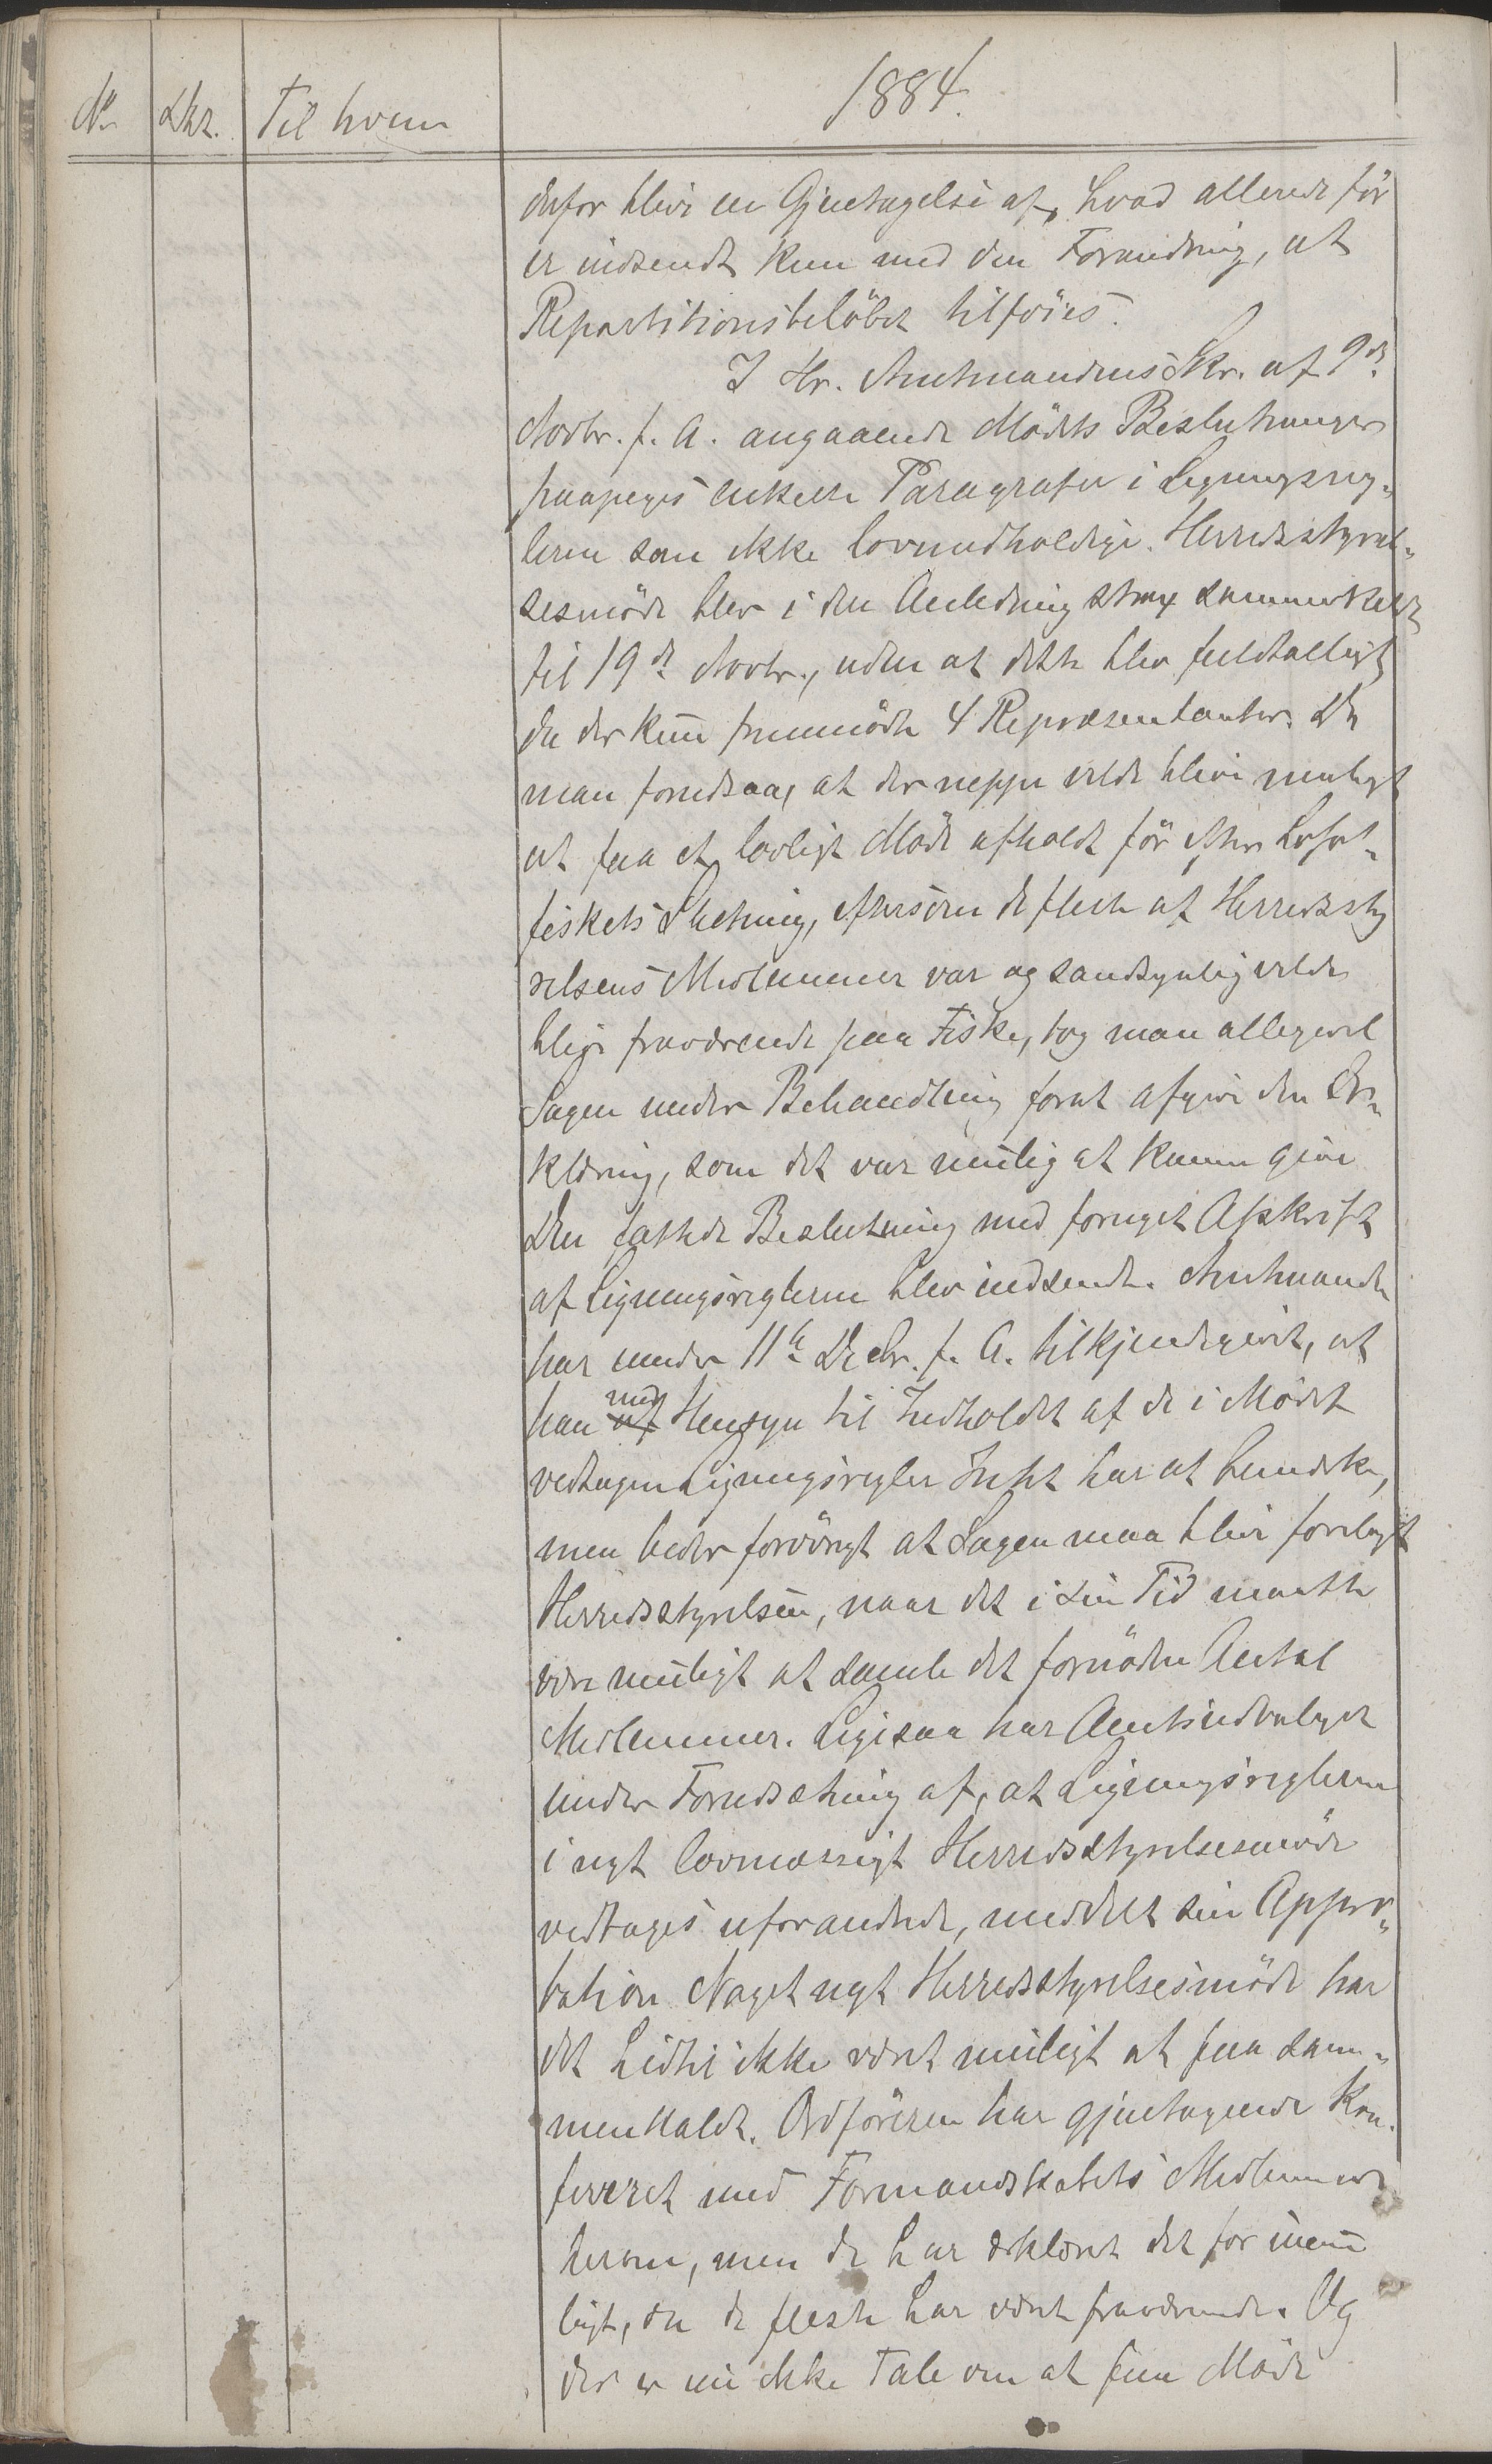 No Skr. Til hvem 1884.
derfor blive en Gjentagelse af, hvad allerede før
er indsendt kun med den Forandring, at
Repartitionsbeløbet tilføies.
I Hr. Amtmandens Skr. af 9de
Novbr. f. A. angaaende Mødets Beslutninger
paapeges enkelte Paragrafer i Ligningsreg„
lerne som ikke lovmedholdige. Herredsstyrel„
sesmøde blev i den Anledning strax sammenkaldt
til 19de Novbr., uden at dette blev fuldtalligt
da der kun fremmødte 4 Repræsentanter. Da
man forudsaa, at der neppe vilde blive muligt
at faa et lovligt Møde afholdt før efter Lofot„
fiskets Slutning, eftersom de fleste af Herredssty
relsens Medlemmer var og sandsynlig vilde
blive fraværende paa Fiske, tog man alligevel
Sagen under Behandling forat afgive den Er„
klæring, som det var mulig at kunne give
Den fattede Beslutning med forøget Afskrift
af Ligningsreglerne blev indsendt. Amtmanden
har under 11te Decbr. f. A. tilkjendegivet, at
han af med Hensyn til Indholdet af de i Mødet
vedtagne Ligningsregler Intet har at bemærke,
men beder forøvrigt at Sagen maa blive forelagt
Herredsstyrelsen, naar det i sin Tid maatte
være muligt at samle det fornødne Antal
Medlemmer. Ligesaa har Amtsudvalget
under Forudsætning af, at Ligningsreglerne
i nyt lovmæssigt Herredsstyrelsesmøde
vedtages uforandrede, meddelt sin Appro„
bation Noget nyt Herredsstyrelsesmøde har
det hidtil ikke været muligt at faa sam„
menkaldt. Ordføreren har gjentagende kon„
fereret med Formandskabets Medlemmer
herom, men de har erklæret det for umu
ligt, da de fleste har været fraværende. Og
der er nu ikke Tale om at faa Møde